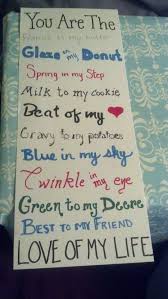 You Are The
to my butter
Glaze on my Donut
Spring in my Step
Milk to my cookie
Beat of my
Gravy to my potatoes
Blue in my sky
Twinkle in my eye
Green to my Deere
Best to my Friend
LOVE OF MY LIFE